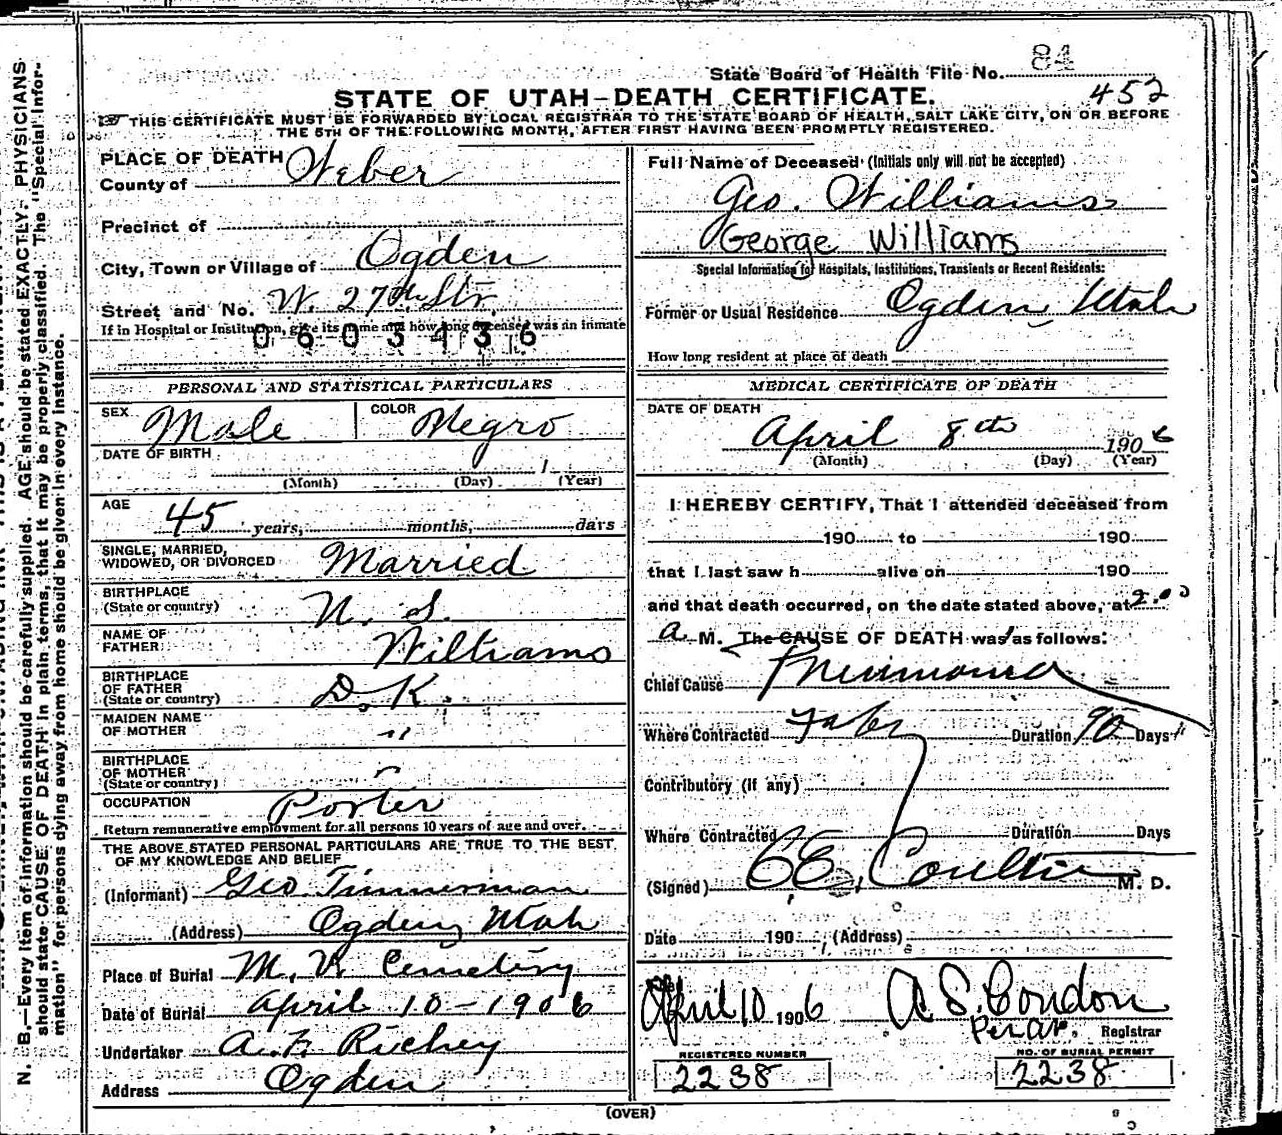 State Board of Health File No. 84
452
STATE OF UTAH—DEATH CERTIFICATE.
THIS CERTIFICATE MUST BE FORWARDED BY LOCAL REGISTRAR TO THE STATE BOARD OF HEALTH, SALT LAKE CITY, ON OR BEFORE
THE 5TH OF THE FOLLOWING MONTH, AFTER FIRST HAVING BEEN PROMPTLY REGISTERED.
PLACE OF DEATH
County of Weber
Precinct of
City, Town or Village of Ogden
Street and No. W. 27th Str.
If in Hospital or Institution, give its name and how long deceased was an inmate
0603136
PERSONAL AND STATISTICAL PARTICULARS
SEX Male COLOR Negro
DATE OF BIRTH
(Month) (Day) 1 (Year)
AGE 45 years, months, days
SINGLE, MARRIED,
WIDOWED, OR DIVORCED Married
BIRTHPLACE
(State or country) U. S.
NAME OF
FATHER Williams
BIRTHPLACE
OF FATHER
(State or country) D. K.
MAIDEN NAME
OF MOTHER "
BIRTHPLACE
OF MOTHER
(State or country)
OCCUPATION Porter
Return remunerative employment for all persons 10 years of age and over.
THE ABOVE STATED PERSONAL PARTICULARS ARE TRUE TO THE BEST
OF MY KNOWLEDGE AND BELIEF
(Informant) Geo Timmerman
(Address) Ogden Utah
Place of Burial M. V. Cemetery
Date of Burial April 10-1906
Undertaker A. F. Richey
Address Ogden
Full Name of Deceased (Initials only will not be accepted)
Geo. Williams
George Williams
Special Information for Hospitals, Institutions, Transients or Recent Residents:
Former or Usual Residence Ogden Utah
How long resident at place of death
MEDICAL CERTIFICATE OF DEATH
DATE OF DEATH
April 8th 1906
(Month) (Day) (Year)
I HEREBY CERTIFY, That I attended deceased from
190 to 190
that I last saw h alive on 190
and that death occurred, on the date stated above, at 2.00
a M. The CAUSE OF DEATH was as follows:
Chief Cause Pneumonia
Where Contracted Duration 90 Days
Contributory (if any)
Where Contracted Duration Days
(Signed) Coulter M. D.
Date 190 , (Address)
April 10 1906 A S. Condon
Per Registrar
REGISTERED NUMBER
2238
NO. OF BURIAL PERMIT
2238
(OVER)
N. B.—Every item of information should be carefully supplied. AGE should be stated EXACTLY. PHYSICIANS
should state CAUSE OF DEATH in plain terms, that it may be properly classified. The "Special Infor-
mation" for persons dying away from home should be given in every instance.